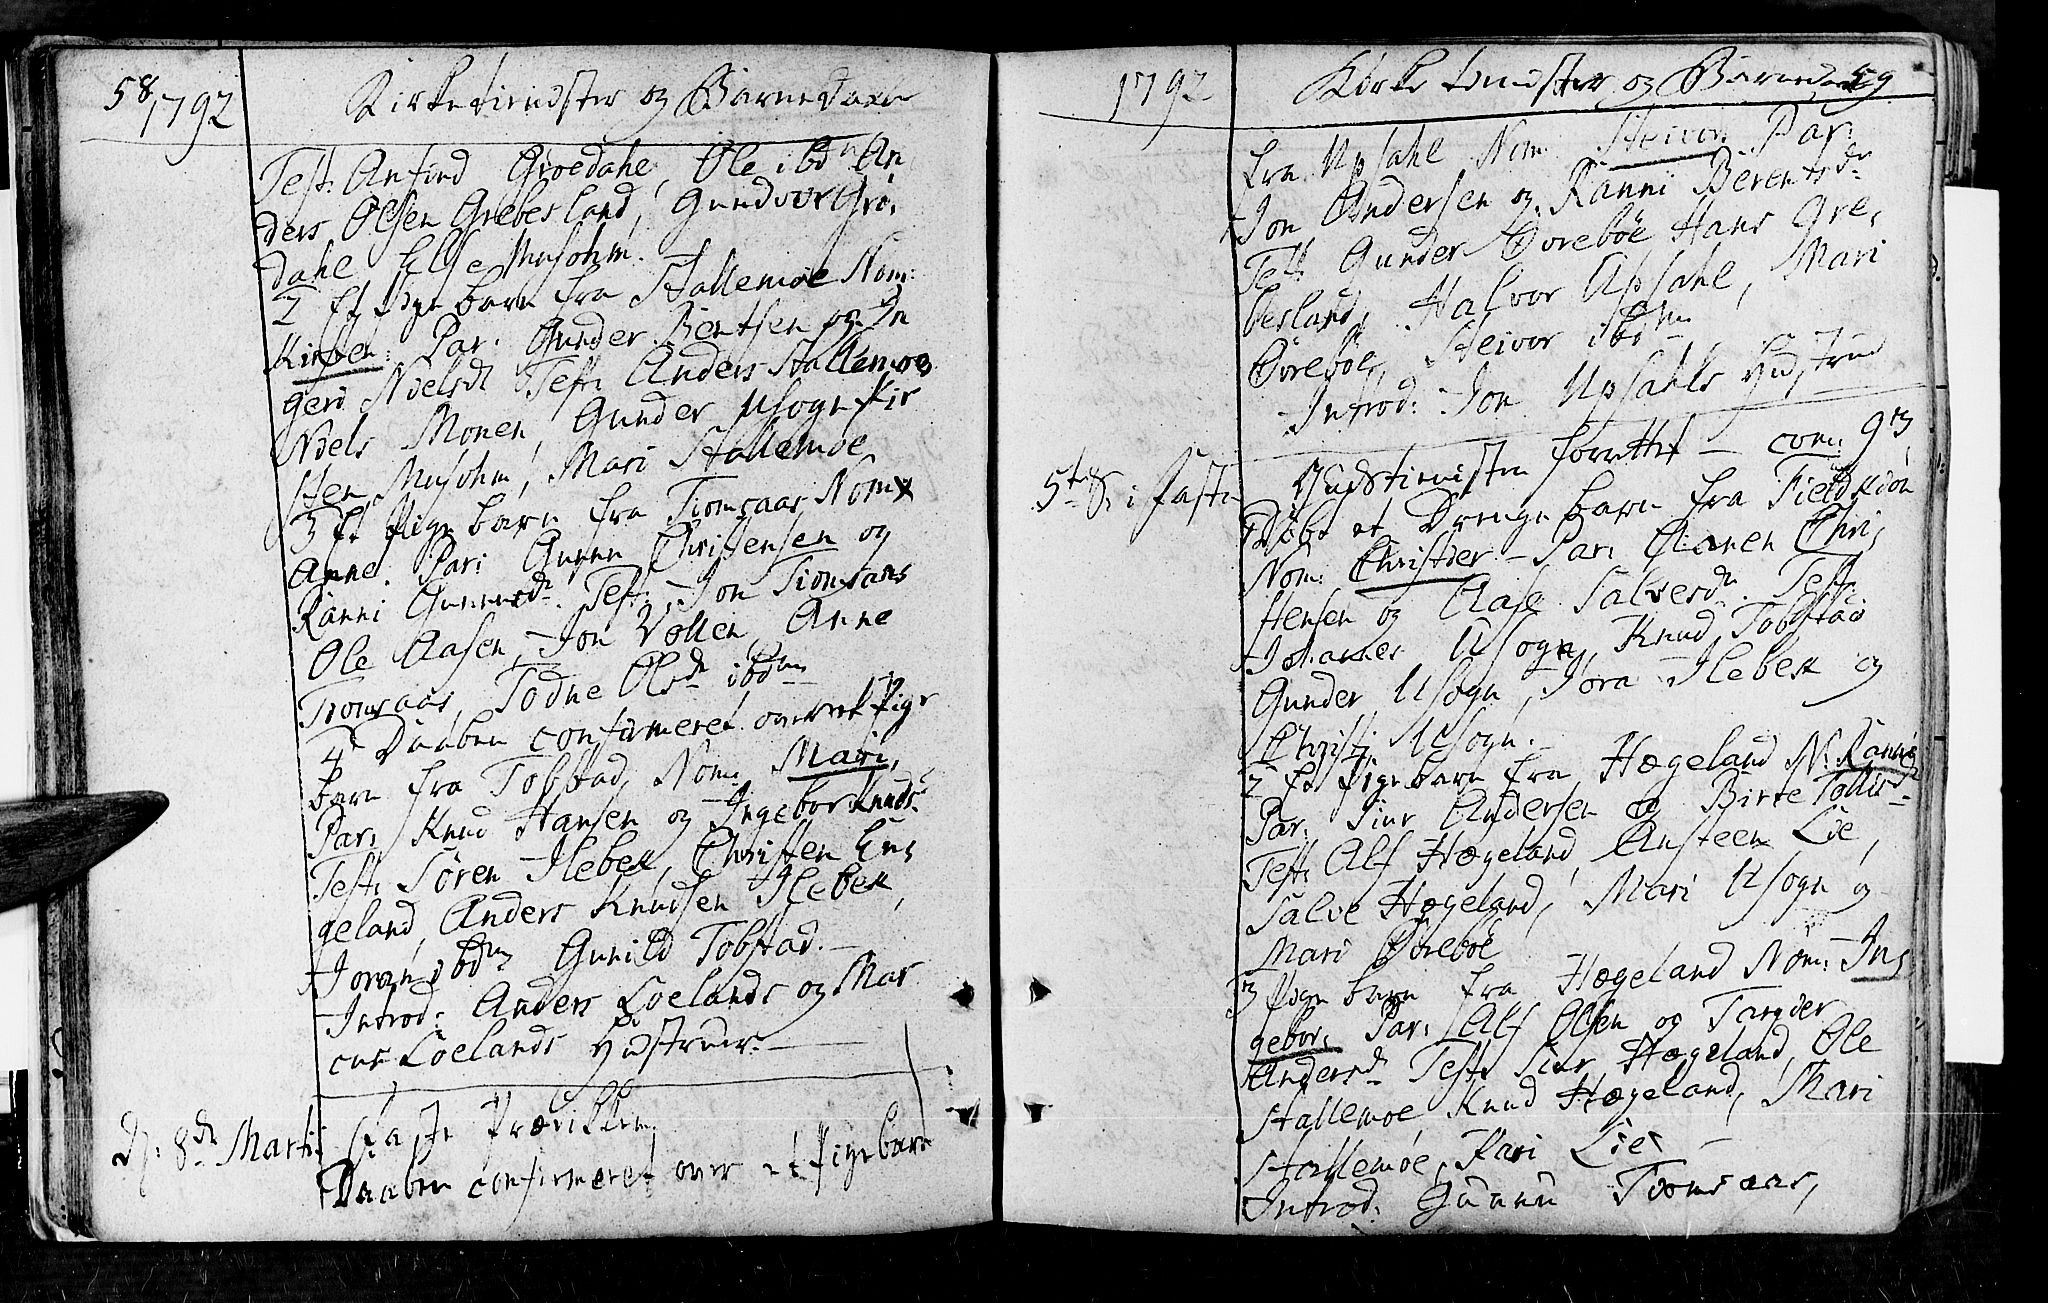 58
1792
Kirketienster og Barnedaab
Test. Anfind Groedahl, Ole ibdn An
ders Olsen Grebesland, Gundvor Grö,
dahl Else Musohm.
2 Et Pigebarn fra Stallemoe Nom:
Kirsten: Par. Gunder Bentsen og In
geri Nielsd. Test. Anders Stallemoe
Niels Monen, Gunder Usogn Kir
sten Musohm, Mari Stallemoe
3 Et Pigebarn fra Tiomsaas Nom
Anne. Par: Gunne Christensen og
Ranni Gunnersdr. Test. Jon Tiomsaas
Ole Aasen, Jon Vollen, Anne
Tiomsaas, Todne Olsdr ibdm
4 Daaben confirmeret over et Pige
barn fra Tobstad, Nom. Mari,
Par: Knud Hansen og Ingebor Knuds
Test: Søren Ilebek, Christen Eng
geland, Anders Knudsen Ilebek,
Joran ibdm Gunild Tobstad.
Introd: Anders Loelands og Mar
cus Loelands Hustruer.
D. 8de Martii
Faste Prædikken.
Daaben confirmeret over et Pigebarn
1792
Kirke tienester og Barned 59
fra Upsahl Nom. Steivor Par:
Jon Andersen og Ranni Berentsdr.
Test. Gunder Øvrebøe Hans Gre,
besland, Halvor Upsahl, Mari
Øvrebøe, Steivor ibdm
Introd: Jon Upsahls Hustrue
5te S. i Faste
Gudstienisten forrettet – com: 93
Døbt et Drengebarn fra Fieldskiön
Nom: Christder – Par: Aanen Chri,
stensen og Aase Salvesdr. Test.
Johannes Usogn, Knud Tobstad
Gunder Usogn, Jora Ilebek og
Christj Usogn.
2 Et Pigebarn fra Hægeland N: Ranni
Par: Siur Andersen og Birte Tollisd
Test: Alf Hægeland, Ansteen Lie,
Salve Hægeland, Mari Usogn og
Mari Øvrebøe
3 Pigebarn fra Hægeland Nom: In,
gebor: Par: Alf Olsen og Targier
Andersd. Test: Siur Hægeland, Ole
Stallemoe, Knud Hægeland, Mari
Stallemoe, Kari Lie
Introd: Gunne Tiomsaas,